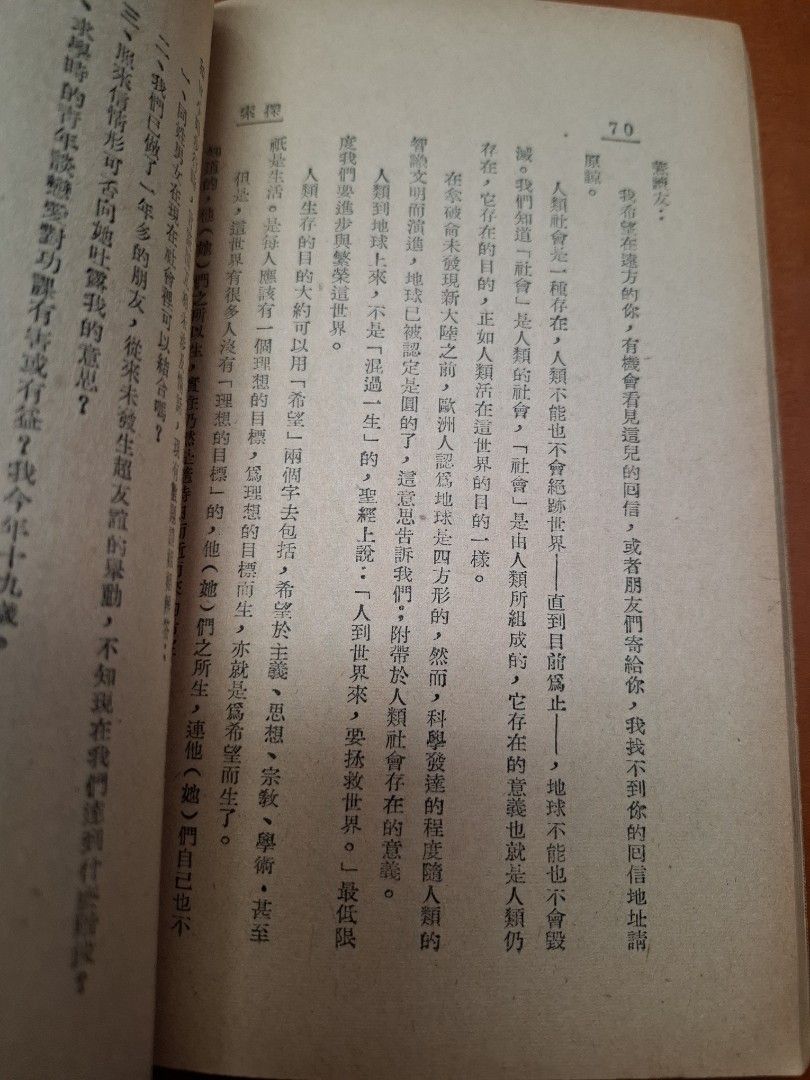 70
探索
我希望在遠方的你，有機會看見這兒的回信，或者朋友們寄給你，我找不到你的回信地址請
原諒。
人類社會是一種存在，人類不能也不會絕跡世界——直到目前爲止——，地球不能也不會毀
滅。我們知道「社會」是人類的社會，「社會」是由人類所組成的，它存在的意義也就是人類仍
存在，它存在的目的，正如人類活在這世界的目的一樣。
在拿破崙未發現新大陸之前，歐洲人認爲地球是四方形的，然而，科學發達的程度隨人類的
智識文明而演進，地球已被認定是圓的了，這意思告訴我們；附帶於人類社會存在的意義。
人類到地球上來，不是「混過一生」的，聖經上說：「人到世界來，要拯救世界。」最低限
度我們要進步與繁榮這世界。
人類生存的目的大約可以用「希望」兩個字去包括，希望於主義、思想、宗教、學術・甚至
祇是生活。是每人應該有一個理想的目標，爲理想的目標而生，亦就是爲希望而生了。
但是，這世界有很多人沒有「理想的目標」的，他（她）們之所生，連他（她）們自己也不
知道的，他（她）們之所以生，
二、我們已做了一年多的朋友，從來未發生超友誼的舉動，不知現在我們達到什麼階段？
三、照來信情形可否向她吐露我的意思？
時的青年談戀愛對功課有害或有益？我今年十九歲。